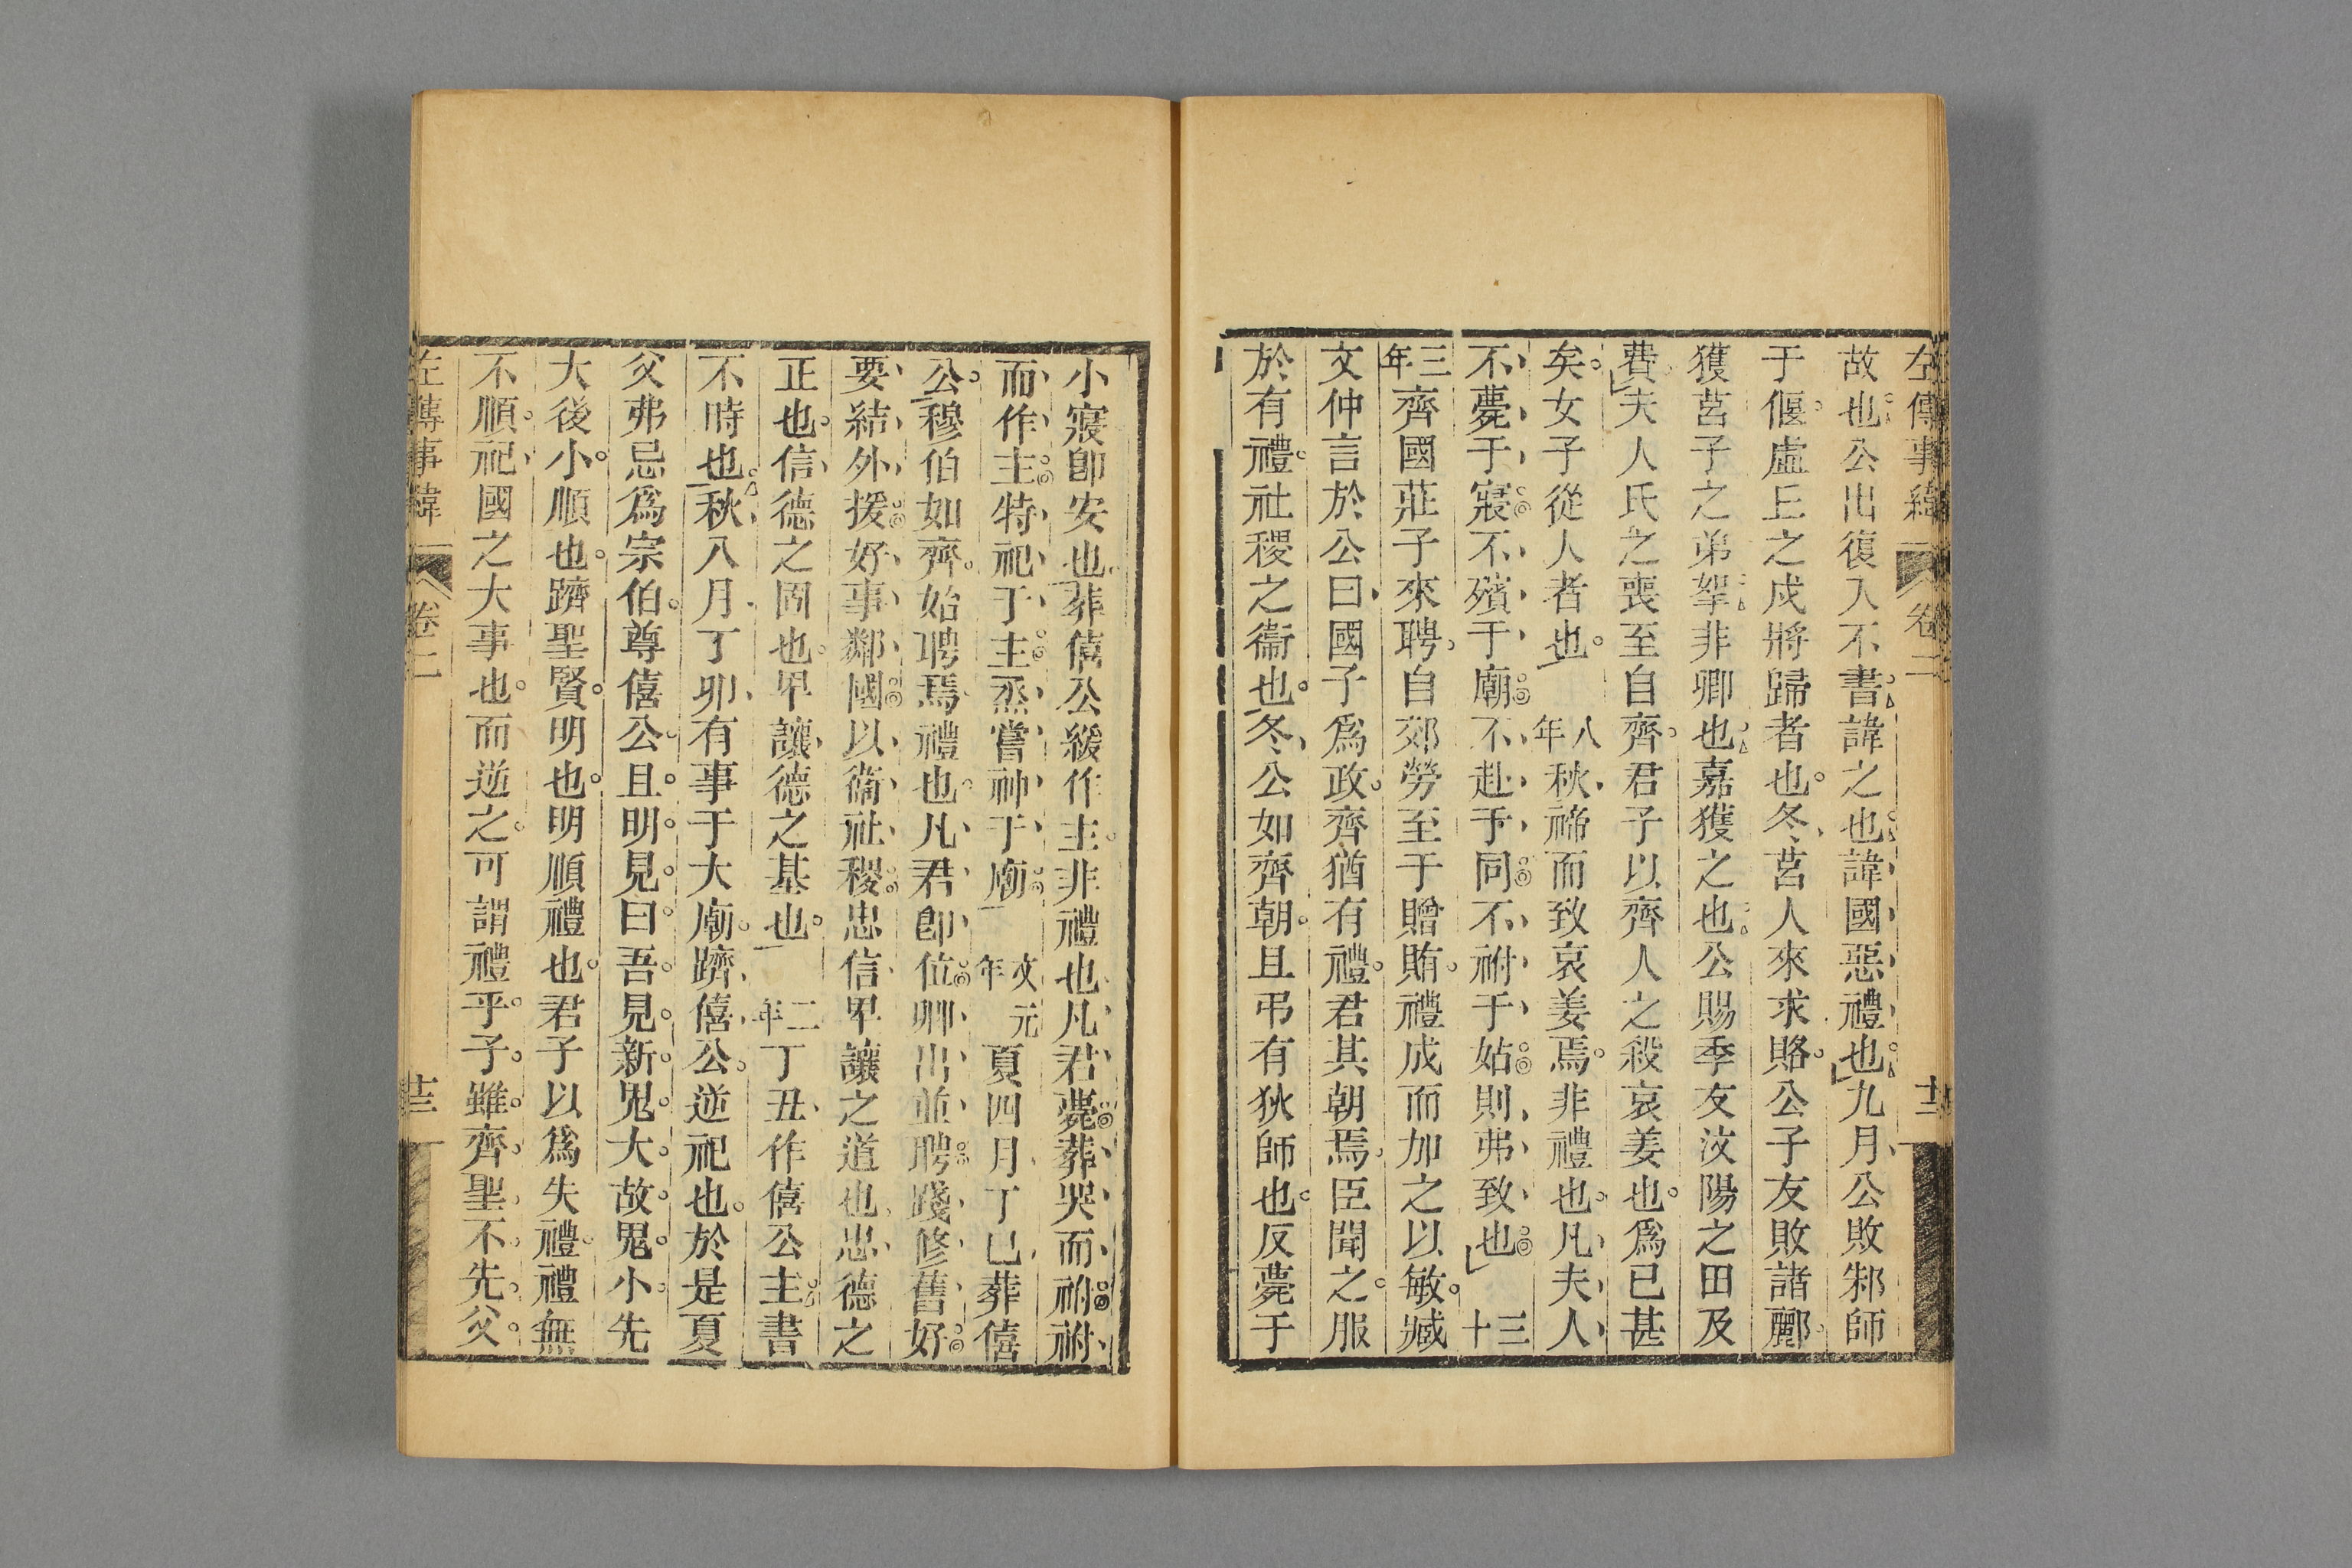 左傳事緯 卷二 十二
故也公出復入不書諱之也諱國惡禮也九月公敗邾師
于偃虛丘之戍將歸者也冬莒人來求賂公子友敗諸酈
獲莒子之弟挐非卿也嘉獲之也公賜季友汶陽之田及
費夫人氏之喪至自齊君子以齊人之殺哀姜也爲已甚
矣女子從人者也 八年秋禘而致哀姜焉非禮也凡夫人
不薨于寢不殯于廟不赴于同不祔于姑則弗致也 三十
三年齊國莊子來聘自郊勞至于贈賄禮成而加之以敏臧
文仲言於公曰國子爲政齊猶有禮君其朝焉臣聞之服
於有禮社稷之衞也冬公如齊朝且弔有狄師也反薨于
小寢卽安也葬僖公緩作主非禮也凡君薨葬哭而祔祔
而作主特祀于主烝嘗禘于廟 文元年夏四月丁巳葬僖
公穆伯如齊始聘焉禮也凡君卽位卿出並聘踐修舊好
要結外援好事鄰國以衞社稷忠信卑讓之道也忠德之
正也信德之固也卑讓德之基也 二年丁丑作僖公主書
不時也秋八月丁卯有事于大廟躋僖公逆祀也於是夏
父弗忌爲宗伯尊僖公且明見曰吾見新鬼大故鬼小先
大後小順也躋聖賢明也明順禮也君子以爲失禮禮無
不順祀國之大事也而逆之可謂禮乎子雖齊聖不先父
左傳事緯 卷二 十三